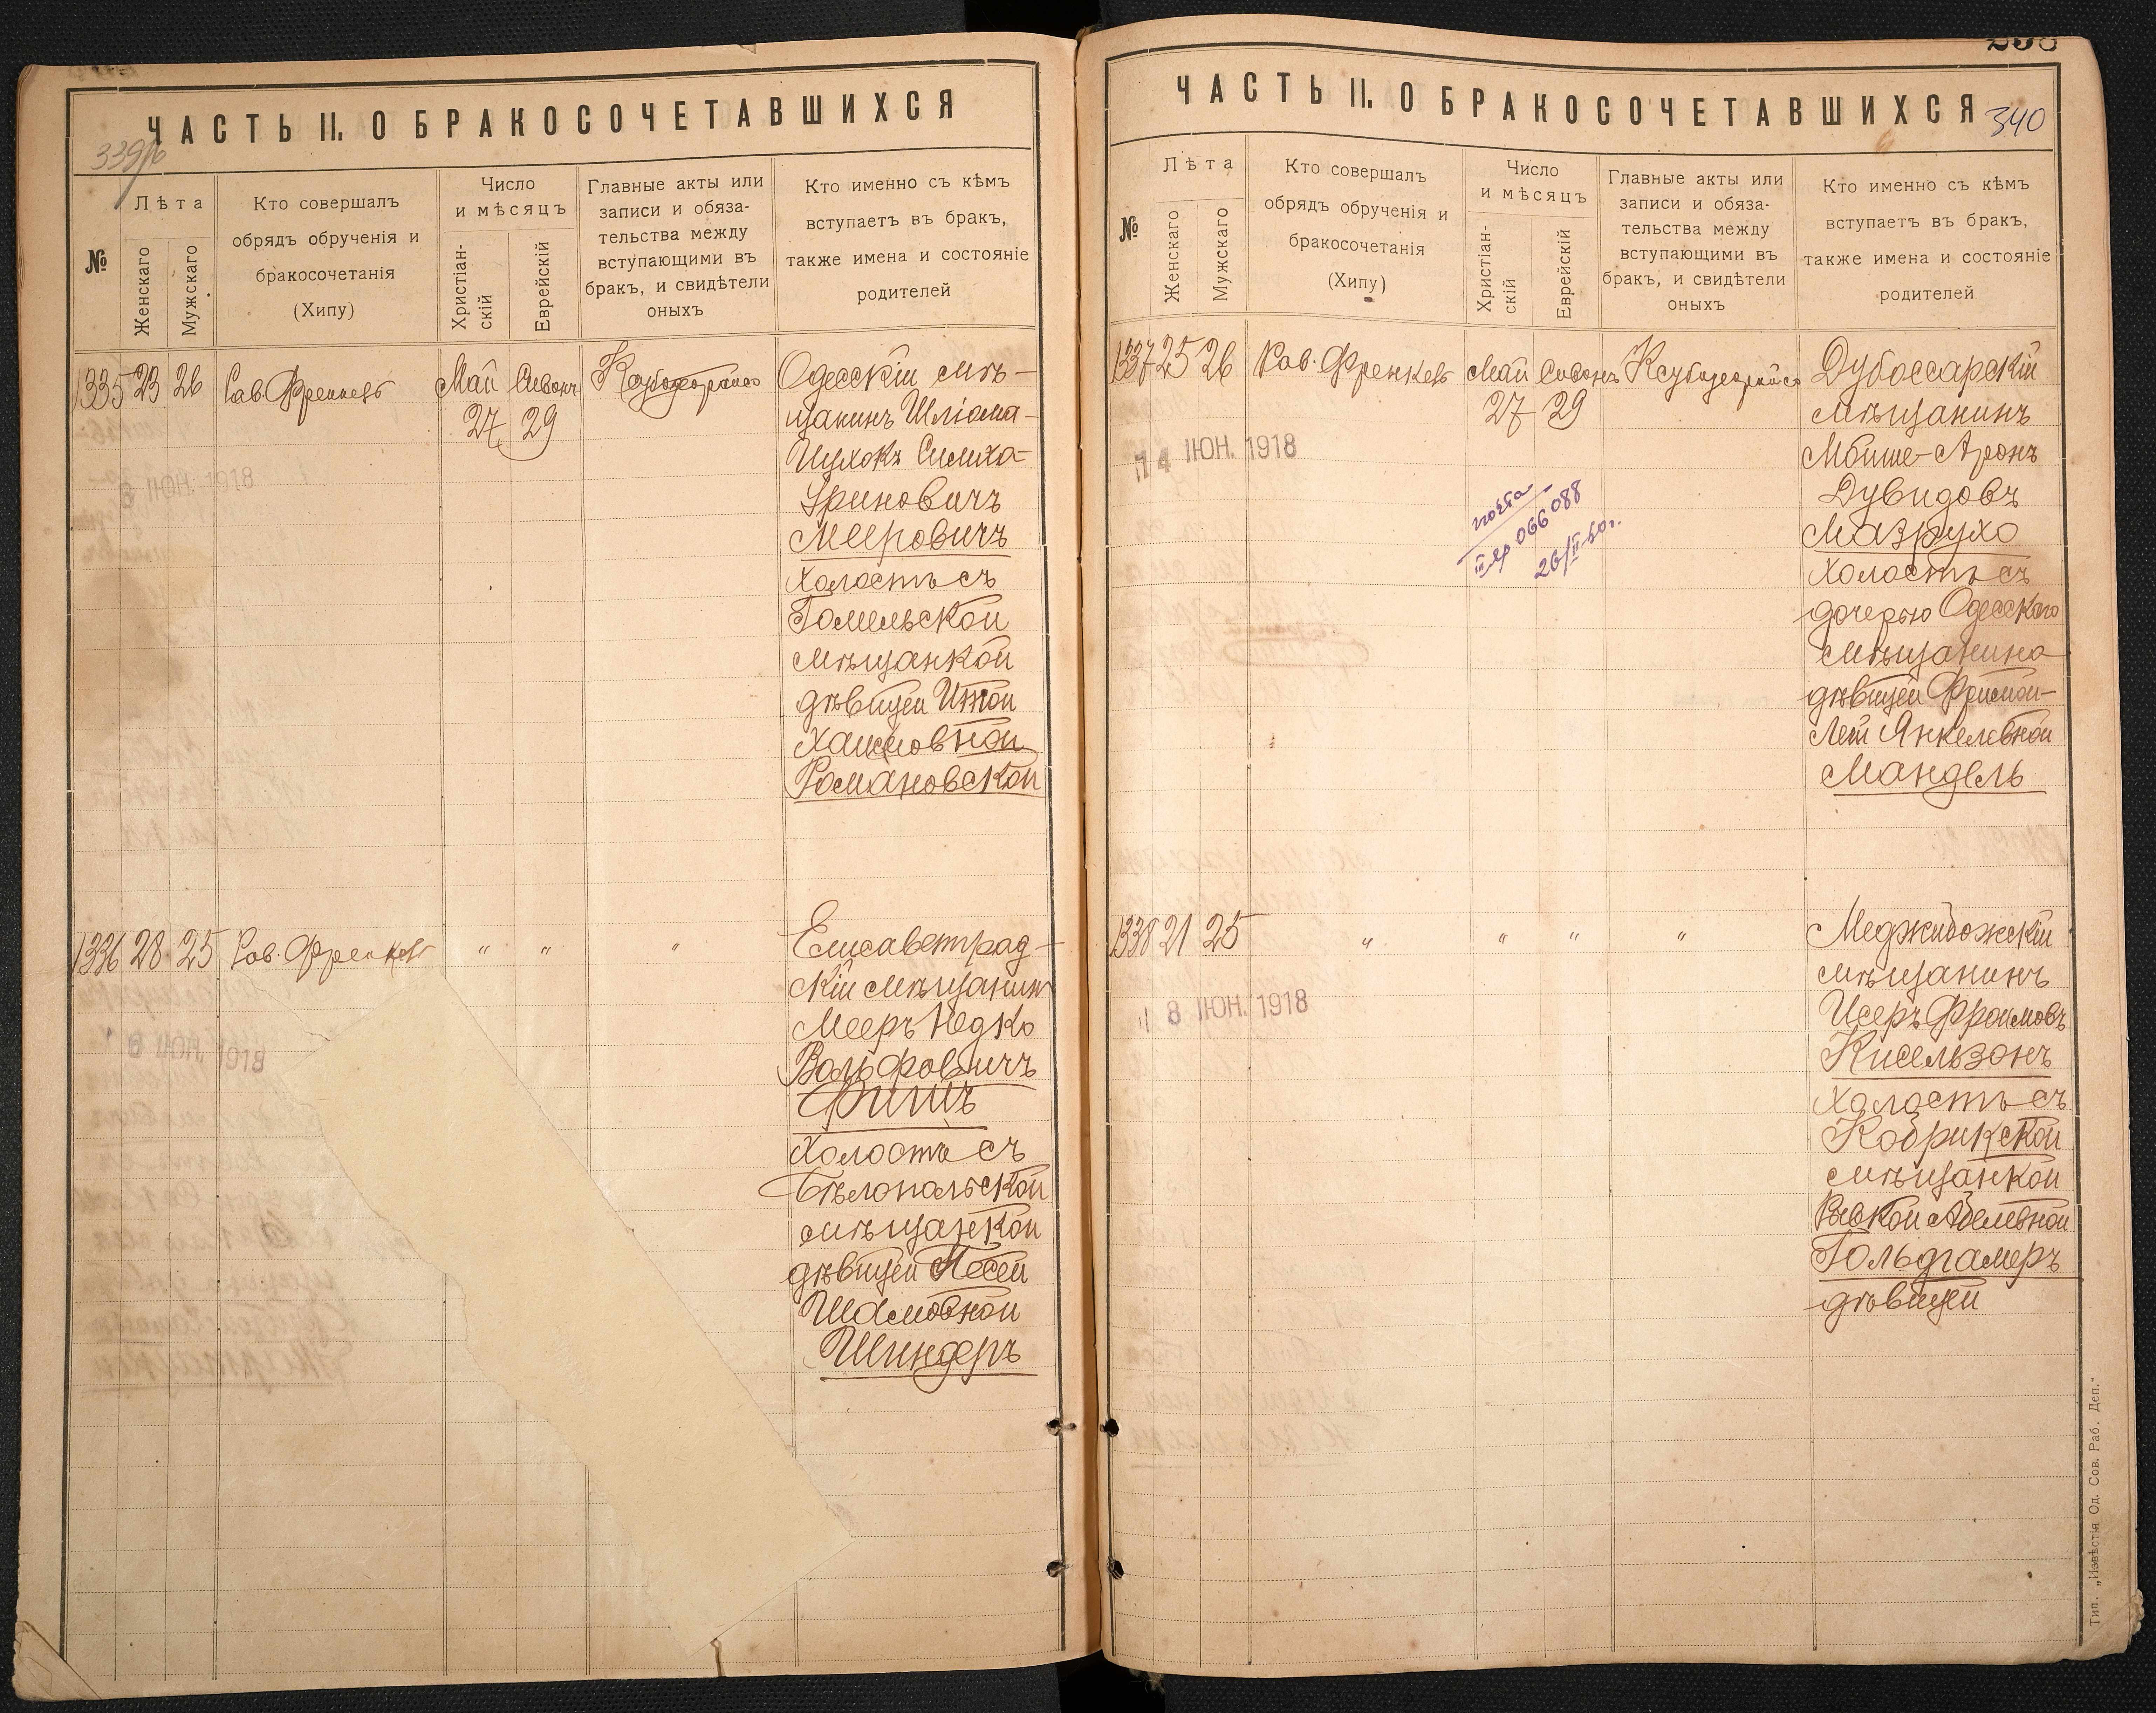 ЧАСТЬ II. О БРАКОСОЧЕТАВШИХСЯ
№
Лѣта
Женскаго
Мужскаго
Кто совершалъ
обрядъ обрученія и
бракосочетанія
(Хипу)
Число
и мѣсяцъ
Христіан-
скій
Еврейскій
Главные акты или
записи и обяза-
тельства между
вступающими въ
бракъ, и свидѣтели
оныхъ
Кто именно съ кѣмъ
вступаетъ въ бракъ,
также имена и состояніе
родителей
1335 23 26 Рав. Френкель Май Сиванъ
27 29
Одесскій мѣ-
щанинъ Шліома-
Ицхокъ Симха-
Ариновичъ
Мееровичъ
холостъ съ
Гомельской
мѣщанкой
дѣвицей Итой
Хаимовной
Романовской
8 ІЮН. 1918
1336 28 25 Рав. Френкель " " "
Елисаветград-
скій мѣщанинъ
Мееръ Юдко
Вольфовичъ
Фишъ
холостъ съ
Бѣлопольской
мѣщанкой
дѣвицей Песей
Шамовной
Шиндеръ
8 ІЮН. 1918
ЧАСТЬ II. О БРАКОСОЧЕТАВШИХСЯ
340
№
Лѣта
Женскаго
Мужскаго
Кто совершалъ
обрядъ обрученія и
бракосочетанія
(Хипу)
Число
и мѣсяцъ
Христіан-
скій
Еврейскій
Главные акты или
записи и обяза-
тельства между
вступающими въ
бракъ, и свидѣтели
оныхъ
Кто именно съ кѣмъ
вступаетъ въ бракъ,
также имена и состояніе
родителей
1337 25 26 Рав. Френкель Май Сиванъ
27 29
Дубоссарскій
мѣщанинъ
Мойше-Аронъ
Дувидовъ
Мазрухо
холостъ съ
дочерью Одесского
мѣщанина
дѣвицей Фримой-
Леей Янкелевной
Мандель
4 ІЮН. 1918
066088
26/II 60г.
1338 21 25 " " " "
Меджибожскій
мѣщанинъ
Исеръ Фроимовъ
Кисельзонъ
холостъ съ
Кобринской
мѣщанкой
Ривкой Абелевной
Гольдгамеръ
дѣвицей
8 ІЮН. 1918
Тип. „Извѣстія Од. Сов. Раб. Деп."